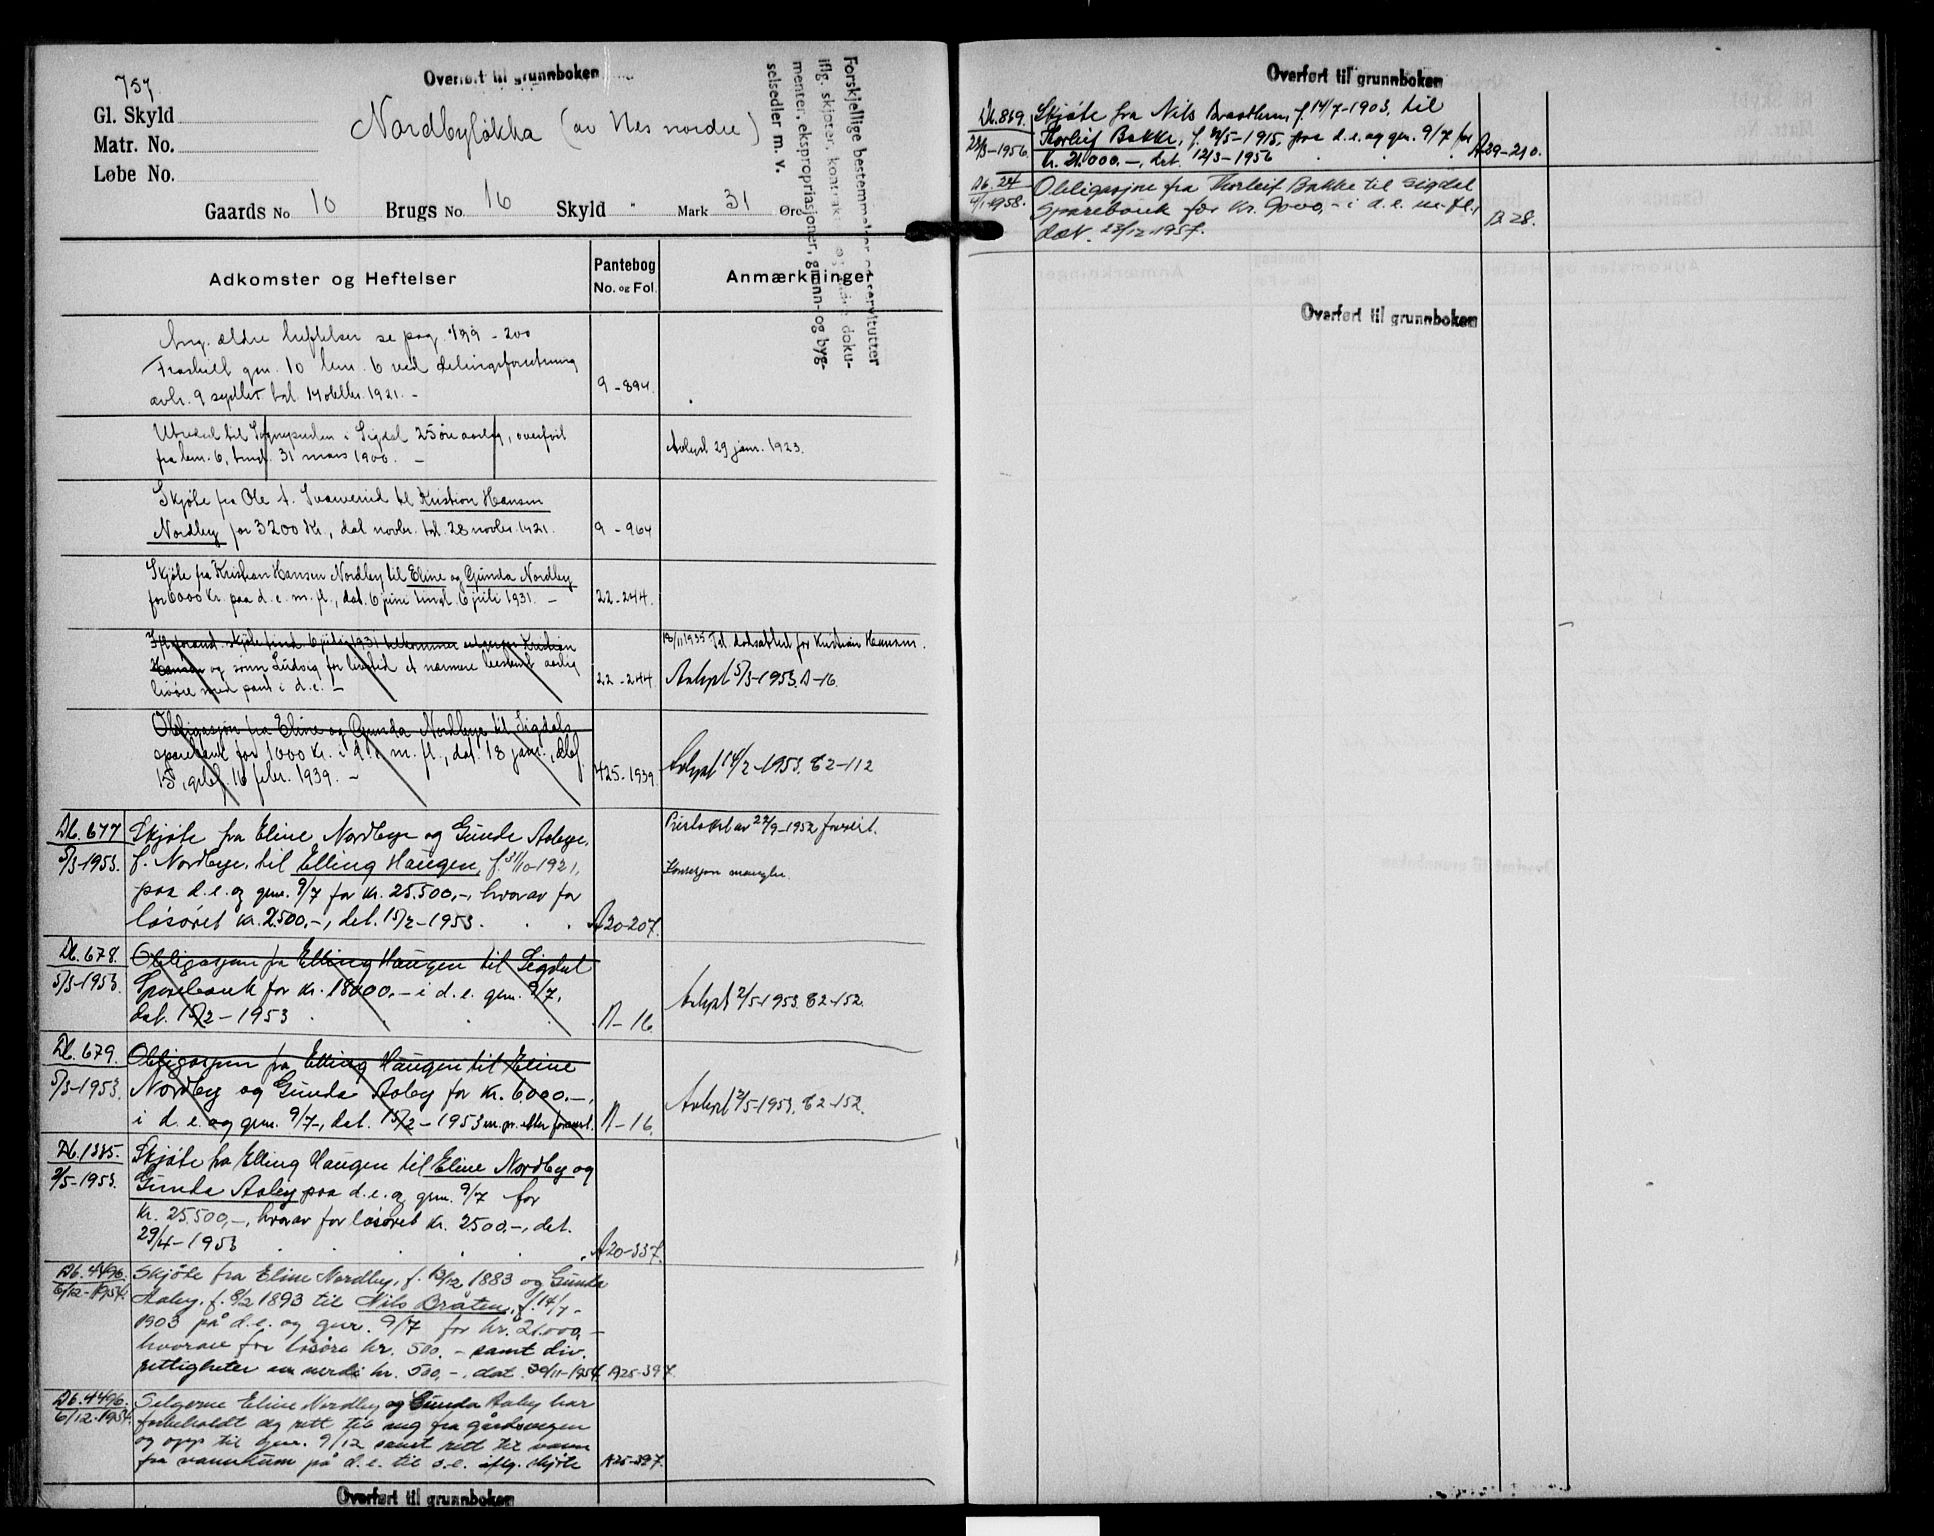 757
Overført til grunnboken
Gl. Skyld
Matr. No.
Løbe No.
Nordbyløkka (av Nes nordre)
Gaards No. 10 Brugs No. 16 Skyld " Mark 31 Øre
Forskjellige bestemmelser, servitutter
iflg. skjøter, doku-
menter, ekspropriasjoner, grunn- og byg-
selsedler m. v.
Adkomster og Heftelser
Pantebog
No. og Fol.
Anmærkninger
Ang. ældre heftelser se pag. 199 - 200
Fraskilt gnr. 10 brn. 6 ved delingsforretning
avh. 9 septbr. tgl. 14 oktbr. 1921. -
9 - 894.
Utredsel til Sognepresten i Sigdal 25 øre aarlig, overført
fra brn. 6, tingl. 31 mars 1900. -
Avlyst 29 jan. 1923.
Skjøte fra Ole A. til Kristian Hansen
Nordby for 3200 Kr., dat novbr. tgl. 28 novbr. 1921.
9 - 964
Skjøte fra Kristian Hansen Nordby til Eline og Gunda Nordby
for 6000 Kr. paa d. e. m. fl., dat. 6 juni tingl. 6 juli 1931. -
22-244.
Ifl. foranst. skjøte tingl. 6 juli 1931 tilkommer selgeren Kristian
Hansen og sønn Ludvig for livstid et nærmere bestemt aarlig
livøre med pant i d.e. -
22-244.
18/11 1935 Tgl. dødsattest for Kristian Hansen.
Avlyst 5/3-1953. A-16.
Obligasjon fra Eline og Gunda Nordbye til Sigdals
sparebank for 1000 Kr. i d.e. m. fl., dat. 18 jan., dbf.
15, gebf. 16 febr. 1939. -
425-1939
Avlyst 14/2-1953. E2-112
Db. 677
5/3-1953.
Skjøte fra Eline Nordbye og Gunda Aabye,
f. Nordbye, til Elling Haugen, f. 31/10-1921,
paa d.e. og gnr. 9/7 for kr. 25.500,-, hvorav for
løsøret kr. 2500,-, dat. 15/2-1953.
A20-207.
Pristakst av 22/9-1952 forevist.
Konsesjon mangler.
Db. 678.
5/3-1953.
Obligasjon fra Elling Haugen til Sigdal
Sparebank for kr. 18000.- i d.e. gnr. 9/7,
dat. 15/2-1953
A-16
Avlyst 2/5-1953. E2-152.
Db. 679.
5/3-1953.
Obligasjon fra Elling Haugen til Eline
Nordby og Gunda Aaby for kr. 6000.-,
i d. e. og gnr. 9/7, dat. 15/2-1953 m. pr. etter foranst.
A-16.
Avlyst 2/5-1953. E2-152.
Db. 1385.
2/5-1953.
Skjøte fra Elling Haugen til Eline Nordby og
Gunda Aaby paa d.e. og gnr. 9/7 for
kr. 25.500,-, hvorav for løsøret kr. 2500.-, dat.
29/4-1953
A20-337.
Db. 4496.
6/12-1954.
Skjøte fra Eline Nordby, f. 13/12 1883 og Gunda
Aaby, f. 8/2 1893 til Nils Bråten, f. 14/7-
1903 på d.e. og gnr. 9/7 for kr. 21.000,-
hvorav for løsøre kr. 500.- samt div.
rettigheter av verdi kr. 500,-, dat. 30/11-1954.
A25-397.
Db. 4496.
6/12-1954.
Selgerne Eline Nordby og Gunda Aaby har
forbeholdt seg rett til veg fra gårdsvegen
og opp til gnr. 9/12 samt rett til vann
fra vannkum på d.e. til s.e. iflg. skjøte
A25-397.
Overført til grunnboken
Overført til grunnboken
Db. 869.
22/3-1956.
Skjøte fra Nils Braathen, f. 14/7-1903, til
Thorleif Bakke, f. 8/5-1915, paa d.e. og gnr. 9/7 for
kr. 21.000.-, dat. 12/3-1956
A29-210.
Db. 24
4/1-1958.
Obligasjon fra Thorleif Bakke til Sigdal
Sparebank for kr. 9000,- i d.e. m. fl.,
dat. 23/12-1957.
B 28.
Overført til grunnboken